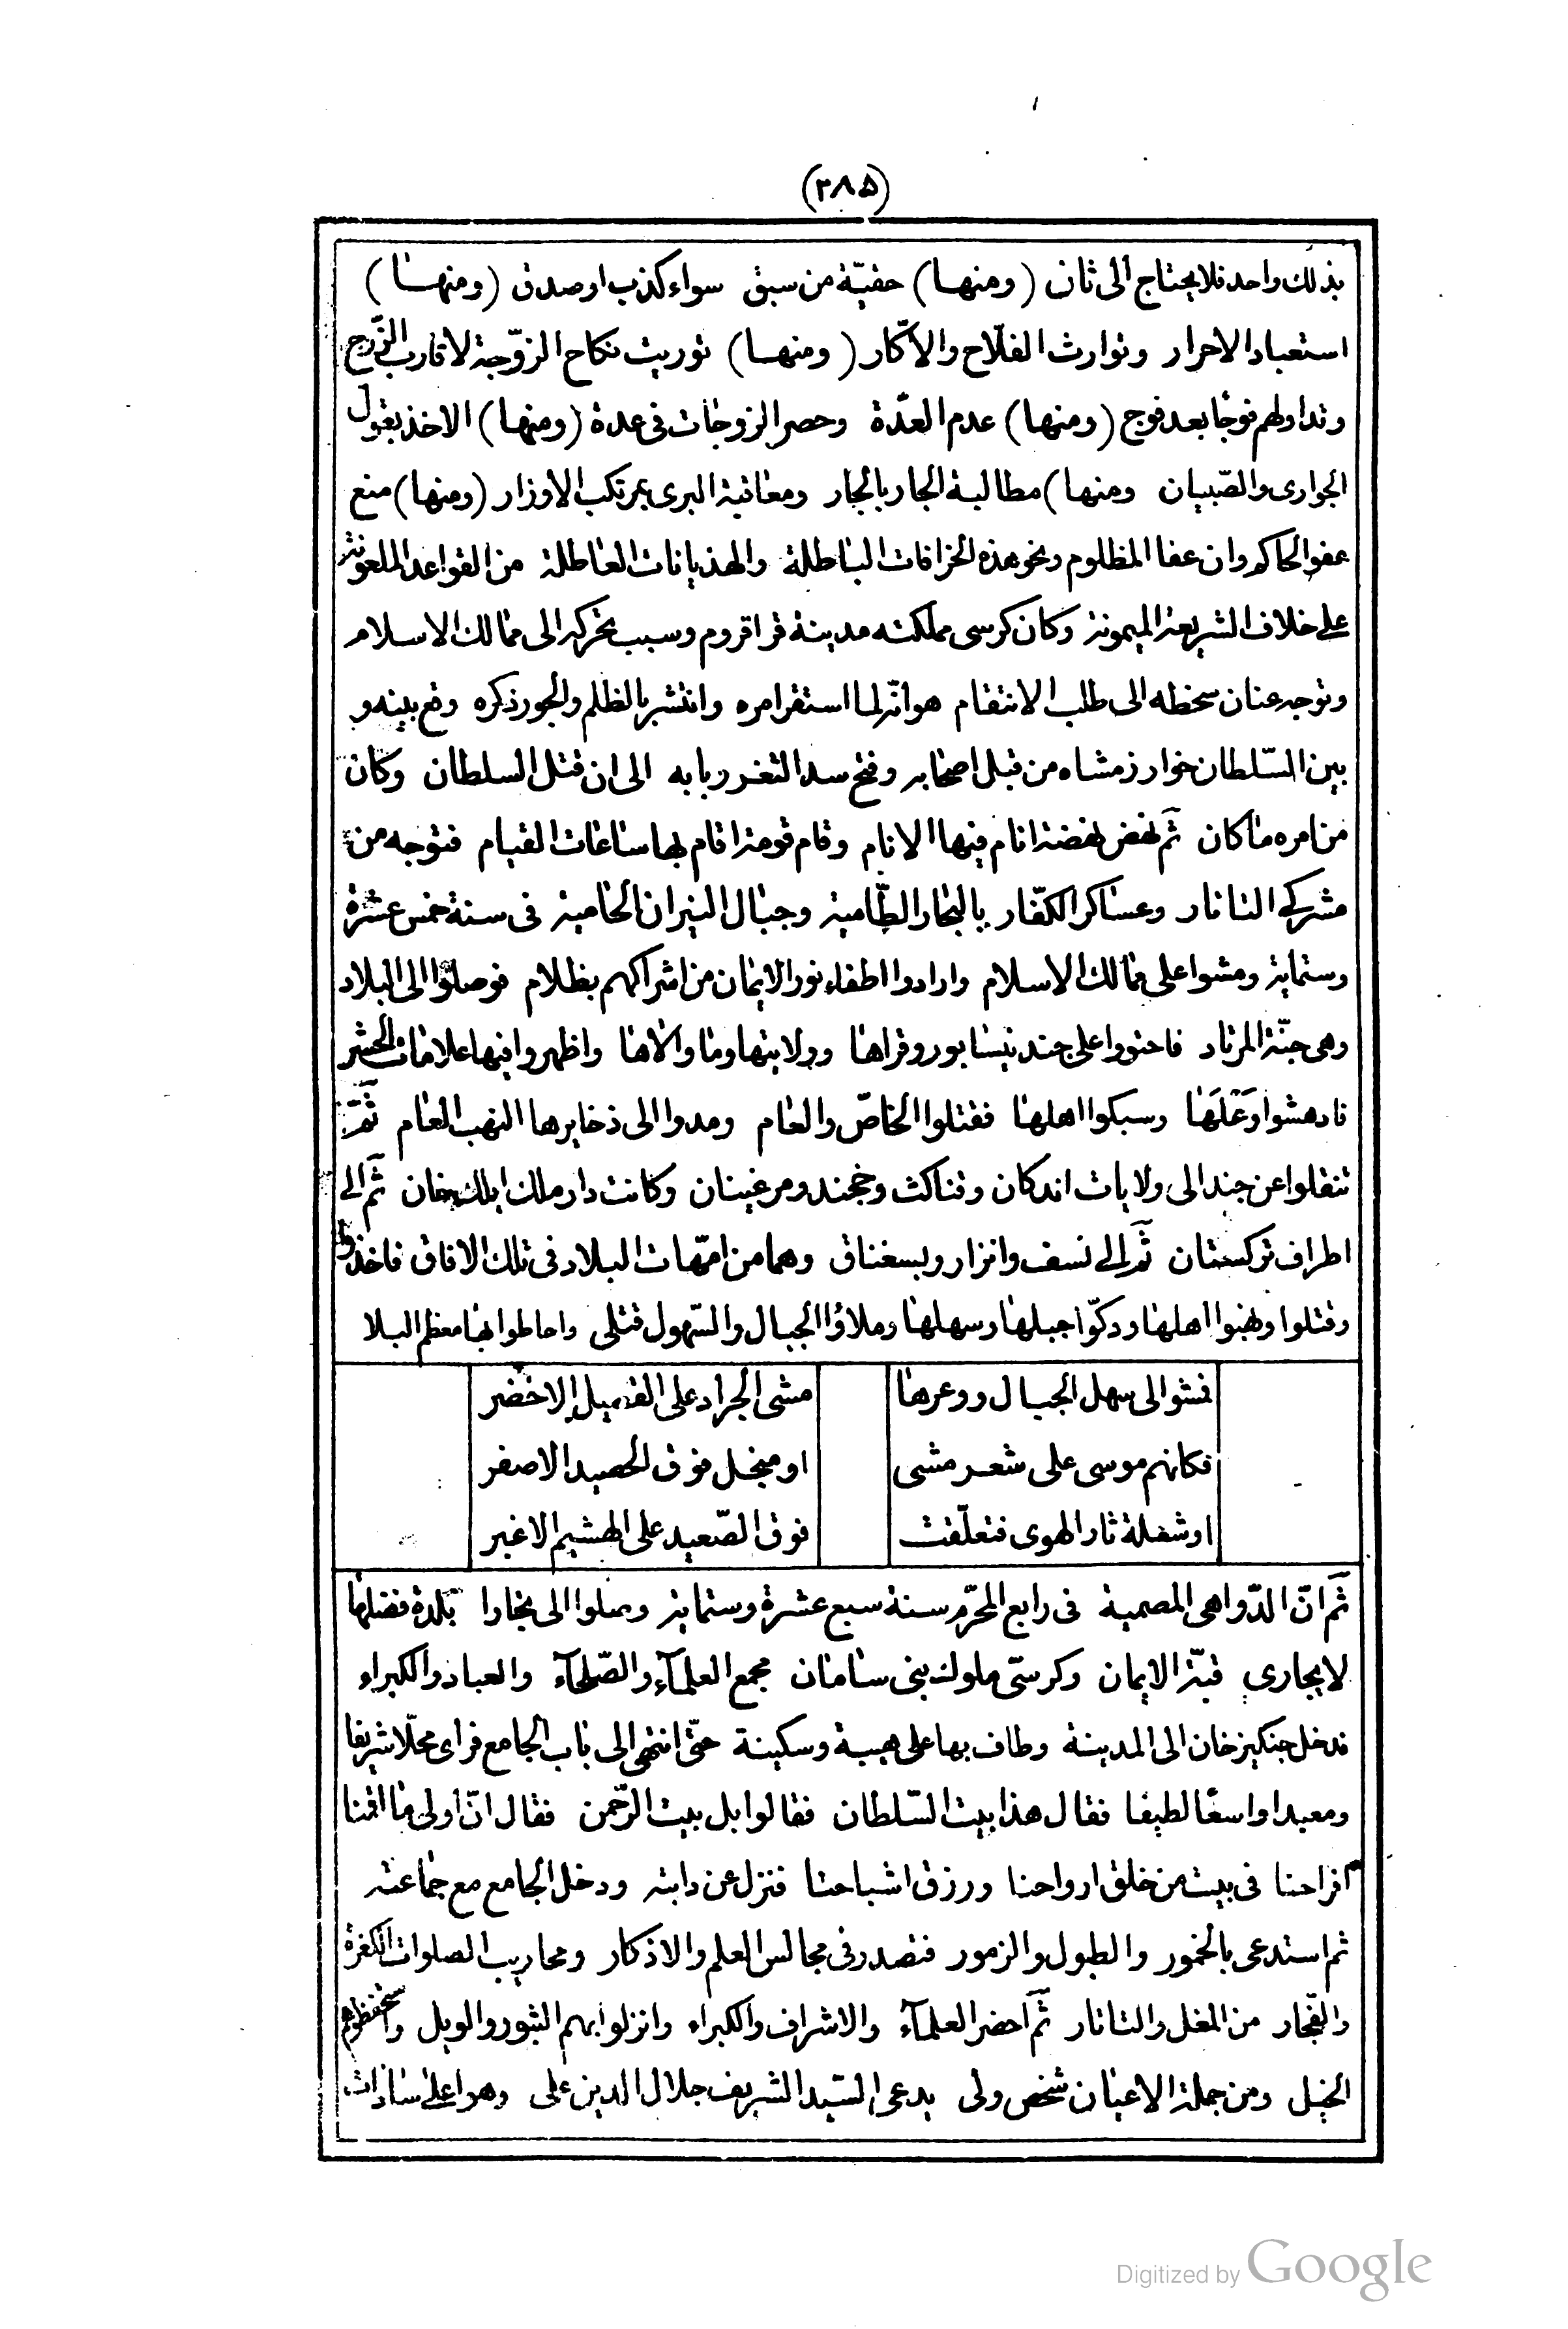 (٣٨٥)
بذلك واحد فلا يحتاج الى ثان (ومنها) حقيّة من سبق سواء كذب او صدق (ومنها)
استعباد الاحرار وتوارث الفلّاح والاكّار (ومنها) توريث نكاح الزوّجة لاقارب الزّوج
وتداولهم فوجًا بعد فوج (ومنها) عدم العدّة وحصر الزوجات فى عدة (ومنها) الاخذ بقول
الجوارى والصّبيان ومنها) مطالبة الجار بالجار ومعاقبة البرى بمرتكب الاوزار (ومنها) منع
عفو الحاكم وان عفا المظلوم ونحو هذه الخرافات الباطلة والهذيانات العاطلة من القواعد الملعونة
على خلاف الشريعة الميمونة وكان كرسى مملكته مدينة قراقروم وسبب تحركه الى ممالك الاسلام
وتوجه عنان سخطه الى طلب الانتقام هو انّه لما استقر امره وانتشر بالظلم والجور ذكره وقع بينه و
بين السّلطان خوارزمشاه من قبل اصحابه وفتح سد الثغر ربابه الى ان قتل السلطان وكان
من امره ما كان ثم نهض نهضة انام فيها الانام وقام قومة اقام بها ساعات القيام فتوجه من
مشركى التاتار وعساكر الكفّار بالبحار الطّامية وجبال النيران الحامية فى سنة خمس عشرة
وستماية ومشوا على ممالك الاسلام وارادوا اطفاء نور الايمان من اشراكهم بظلام فوصلوا الى البلاد
وهى جنّة المرتاد فاحتووا على جند نيسابور وقراها وولايتها وما والاها واظهروا فيها علامات الحشر
فادهشوا وَعْلَهَا وسبكوا اهلها فقتلوا الخاصّ والعام ومدوا الى ذخايرها النهب العام ثمّ
تنقلوا عن جند الى ولايات اندكان وفناكث وخجند ومرغينان وكانت دار ملك ايلك خان ثم الى
اطراف تركستان ثم الى نسف وانزار وبسغناق وهما من امّهات البلاد فى تلك الافاق فاخذوا
وقتلوا ونهبوا اهلها ودكّوا جبلها وسهلها وملاؤا الجبال والسّهول قتلى واحاطوا بها معظم البلا
فمشو الى سهل الجبال ووعرها مشى الجراد على الفصيل الاخضر
فكانهم موسى على شعر مشى او منجل فوق الحصيد الاصفر
او شغلة ثار الهوى فتعلّقت فوق الصّعيد على الهشيم الاغبر
ثم انّ الدّواهى المصمية فى رابع المحرّم سنة سبع عشرة وستماية وصلوا الى بخارا بلدة فضلها
لا يجارى قبّة الايمان وكرسّى ملوك بنى سامان مجمع العلمآء والصّلحآء والعباد والكبراء
فدخل جنكيزخان الى المدينة وطاف بها على هيبة وسكينة حتّى انتهى الى باب الجامع فراى محلّا شريفا
ومعبدا واسعًا لطيفا فقال هذا بيت السّلطان فقالوا بل بيت الرّحمن فقال انّ اولى ما اقمنا
افراحنا فى بيت من خلق ارواحنا ورزق اشباحنا فنزل عن دابته ودخل الجامع مع جماعته
ثم استدعى بالخمور والطبول والزمور فتصدر فى مجالس العلم والاذكار ومحاريب الصلوات الكفرة
والفّجار من المغل والتاتار ثم احضر العلمآء والاشراف والكبراء وانزلوا بهم الثبور والويل واستحفظوهم
الخيل ومن جملة الاعيان شخص ولى يدعى السّيد الشريف جلال الدين على وهو اعلى سادات
Digitized by Google